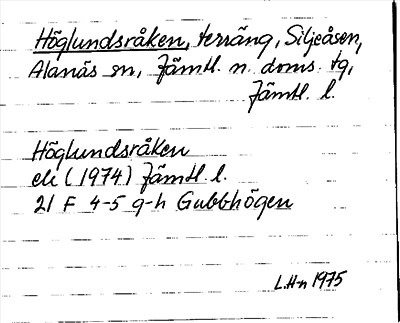 Höglundsråken, terräng, Siljeåsen,
Alanäs sn, Jämtl. n. doms. tg,
Jämtl. l.
Höglundsråken
ek (1974) Jämtl. l.
21 F 4-5 g-h Gubbhögen
L.H-n 1975